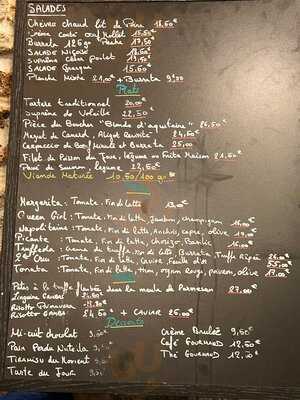 SALADES
Chèvre chaud lit de Poire 16,50€
Crème Comté Œuf Mollet 15,50€
Burrata 125gr Pêche 17,50€
SALADE Niçoise 18,50€
Suprême César poulet 19,50€
SALADE 15,50€
Planche Mixte 21,00€ + Burrata 9,00
Plats
Tartare traditionnel 20,00€
Suprême de Volaille 22,50€
Pièce de Boucher "Blonde d'aquitaine" 26,50€
Magret de Canard, Aligot Revisité 24,50€
Carpaccio de Bœuf Tomate et Burrata 25,00
Filet de Poisson du Jour, légumes ou Frites Maison 21,50€
Pavé de Saumon, légume 22,50€
Viande Maturée 10,50/100gr
Margarita: Tomate, Fior di latte 13,00€
Queen Girl: Tomate, Fior di latte, Jambon, champignon 16,00€
Napolitaine: Tomate, Fior di latte, Anchois, capre, olive 17,00€
Picante: Tomate, Fior di latte, Chorizo, Basilic 16,00€
Truffelata: Crème de truffe, Fior di latte, Burrata, Truffe Râpée 26,00€
Tomate, Fior di latte, Caviar, Feuille d'or 55,00€
Tonnato: Tomate, Fior di latte, Thon, oignon rouge, poivron, olive 17,00€
Pâtes à la truffe flambée dans la meule de Parmesan 27,00€
Linguine Gambas
Risotto Primavera
Risotto Gambas 24,50€ + CAVIAR 25,00€
Desserts
Mi-cuit chocolat 9,50€
Pain Perdu Nutella 9,50€
Tiramisu du Moment 9,50€
Tarte du Jour 9,50€
Crème Brulée 9,50€
Café Gourmand 12,50€
Thé Gourmand 12,50€